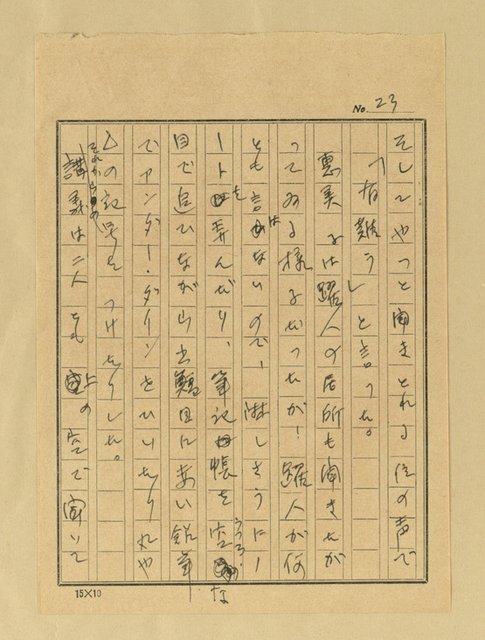 No. 23
そしてやっと聞きとれる位の声で
「有難う」と言った。
恵美子は躍人の居所も聞きたが
ってゐる様子だったが、躍人が何
とも言はないので、淋しさうにノ
ートを弄んだり、筆記帳を空うつろな
目で追ひながら出鱈目に赤い鉛筆
でアンダー・ラインをひいたり丸や
△の記号をつけたりした。
それからの講義は二人とも上の空で聞いて
15×10